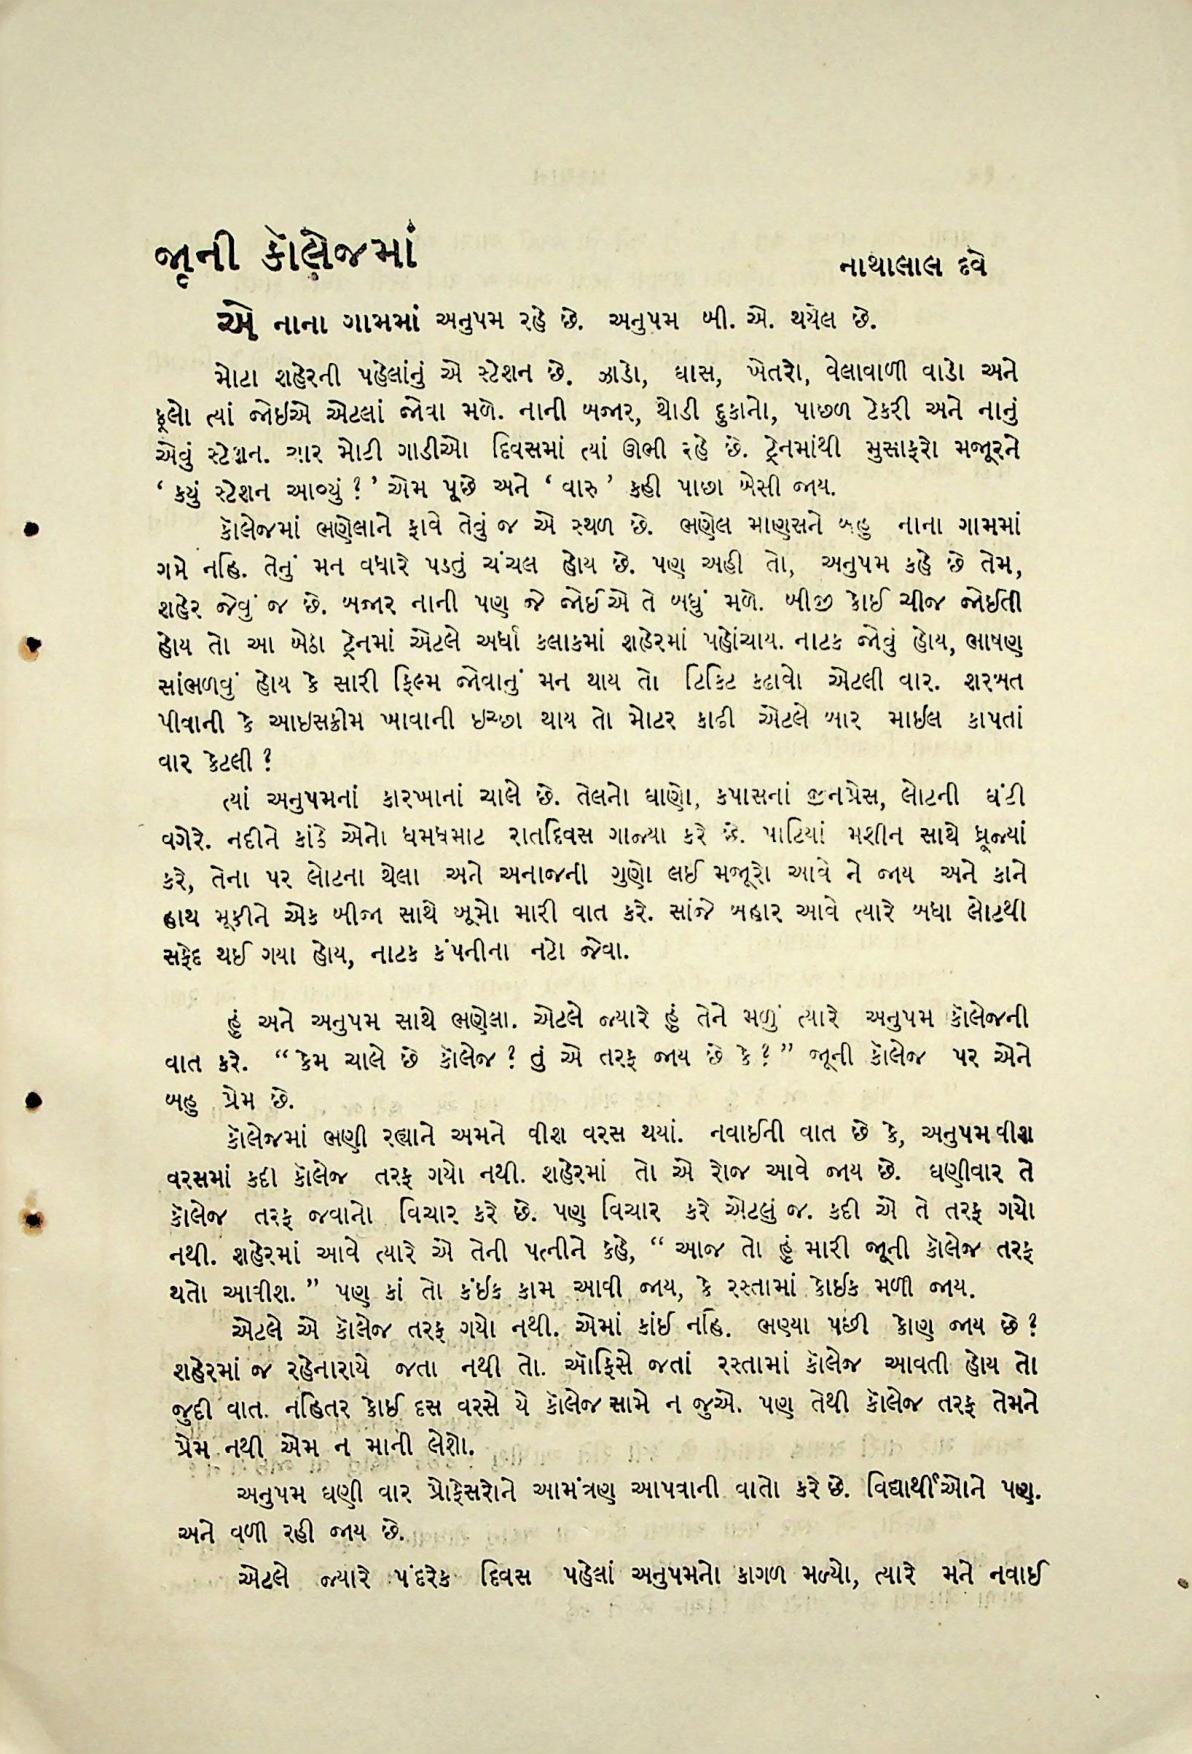 જૂની કૉલેજમાં
નાથાલાલ દવે
એ નાના ગામમાં અનુપમ રહે છે. અનુપમ બી. એ. થયેલ છે.
મોટા શહેરની પહેલાંનું એ સ્ટેશન છે. ઝાડો, ઘાસ, ખેતરો, વેલાવાળી વાડો અને
ફૂલો ત્યાં જોઇએ એટલાં જોવા મળે. નાની બજાર, થોડી દુકાનો, પાછળ ટેકરી અને નાનું
એવું સ્ટેશન. ચાર મોટી ગાડીઓ દિવસમાં ત્યાં ઊભી રહે છે. ટ્રેનમાંથી મુસાફરો મજૂરને
‘ કયું સ્ટેશન આવ્યું ? ’ એમ પૂછે અને ‘ વારુ ’ કહી પાછા બેસી જાય.
કૉલેજમાં ભણેલાને ફાવે તેવું જ એ સ્થળ છે. ભણેલ માણસને બહુ નાના ગામમાં
ગમે નહિ. તેનું મન વધારે પડતું ચંચલ હોય છે. પણ અહી તો, અનુપમ કહે છે તેમ,
શહેર જેવું જ છે. બજાર નાની પણ જે જોઈએ તે બધું મળે. બીજી કોઈ ચીજ જોઈતી
હોય તો આ બેઠા ટ્રેનમાં એટલે અર્ધા કલાકમાં શહેરમાં પહોંચાય. નાટક જોવું હોય, ભાષણ
સાંભળવું હોય કે સારી ફિલ્મ જોવાનું મન થાય તો ટિકિટ કઢાવો એટલી વાર. શરબત
પીવાની કે આઇસક્રીમ ખાવાની ઇચ્છા થાય તો મોટર કાઢી એટલે બાર માઇલ કાપતાં
વાર કેટલી ?
ત્યાં અનુપમનાં કારખાનાં ચાલે છે. તેલનો ઘાણો, કપાસનાં જીનપ્રેસ, લોટની ઘંટી
વગેરે. નદીને કાંઠે એનો ધમધમાટ રાતદિવસ ગાજ્યા કરે છે. પાટિયાં મશીન સાથે ધ્રૂજ્યાં
કરે, તેના પર લોટના થેલા અને અનાજની ગુણો લઈ મજૂરો આવે ને જાય અને કાને
હાથ મૂકીને એક બીજા સાથે બૂમો મારી વાત કરે. સાંજે બહાર આવે ત્યારે બધા લોટથી
સફેદ થઈ ગયા હોય, નાટક કંપનીના નટો જેવા.
હું અને અનુપમ સાથે ભણેલા. એટલે જ્યારે હું તેને મળું ત્યારે અનુપમ કૉલેજની
વાત કરે. “ કેમ ચાલે છે કૉલેજ ? તું એ તરફ જાય છે કે ? ” જૂની કૉલેજ પર એને
બહુ પ્રેમ છે.
કૉલેજમાં ભણી રહ્યાને અમને વીશ વરસ થયાં. નવાઈની વાત છે કે, અનુપમ વીશ
વરસમાં કદી કૉલેજ તરફ ગયો નથી. શહેરમાં તો એ રોજ આવે જાય છે. ઘણીવાર તે
કૉલેજ તરફ જવાનો વિચાર કરે છે. પણ વિચાર કરે એટલું જ. કદી એ તે તરફ ગયો
નથી. શહેરમાં આવે ત્યારે એ તેની પત્નીને કહે, “ આજ તો હું મારી જૂની કૉલેજ તરફ
થતો આવીશ. ” પણ કાં તો કંઈક કામ આવી જાય, કે રસ્તામાં કોઈક મળી જાય.
એટલે એ કૉલેજ તરફ ગયો નથી. એમાં કાંઈ નહિ. ભણ્યા પછી કોણ જાય છે ?
શહેરમાં જ રહેનારાયે જતા નથી તો. ઑફિસે જતાં રસ્તામાં કૉલેજ આવતી હોય તો
જુદી વાત. નહિતર કોઈ દસ વરસે યે કૉલેજ સામે ન જુએ. પણ તેથી કૉલેજ તરફ તેમને
પ્રેમ નથી એમ ન માની લેશો.
અનુપમ ઘણી વાર પ્રોફેસરોને આમંત્રણ આપવાની વાતો કરે છે. વિદ્યાર્થીઓને પણ.
અને વળી રહી જાય છે.
એટલે જ્યારે પંદરેક દિવસ પહેલાં અનુપમનો કાગળ મળ્યો, ત્યારે મને નવાઈ